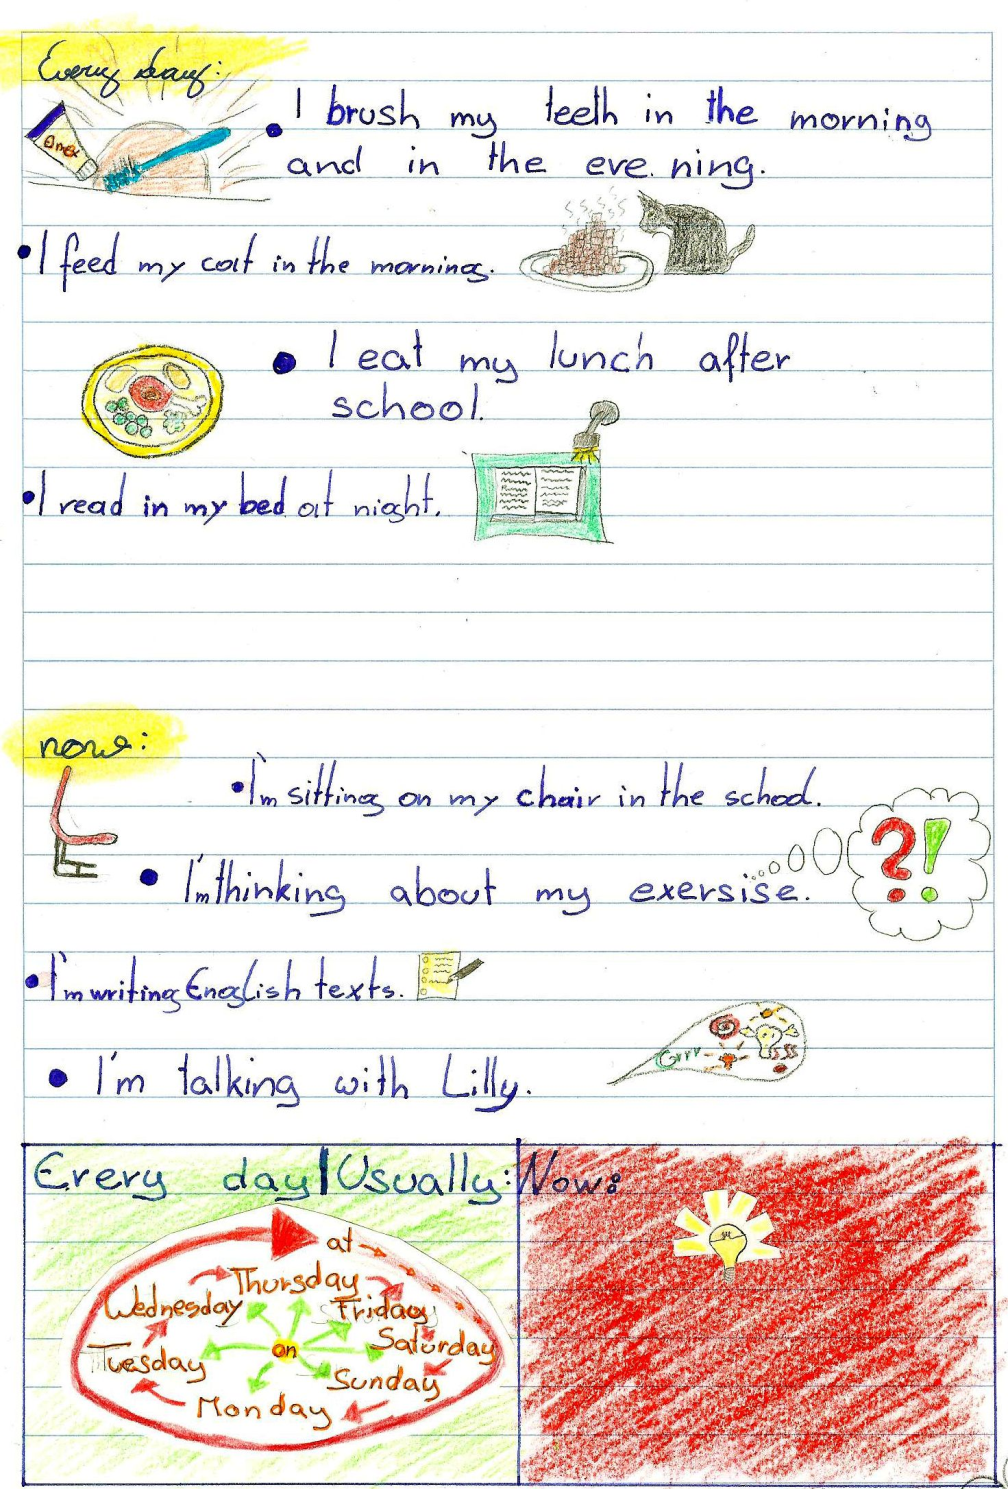 Every day:
• I brush my teeth in the morning
and in the evening.
• I feed my cat in the mornings.
• I eat my lunch after
school.
• I read in my bed at night.
now:
• I'm sitting on my chair in the school.
?!
• I'm thinking about my exersise.
• I'm writing English texts.
Grrr
• I'm talking with Lilly.
Every day|Usually:
Now:
at
Thursday
Wednesday
Friday
Saturday
on
Tuesday
Sunday
Monday